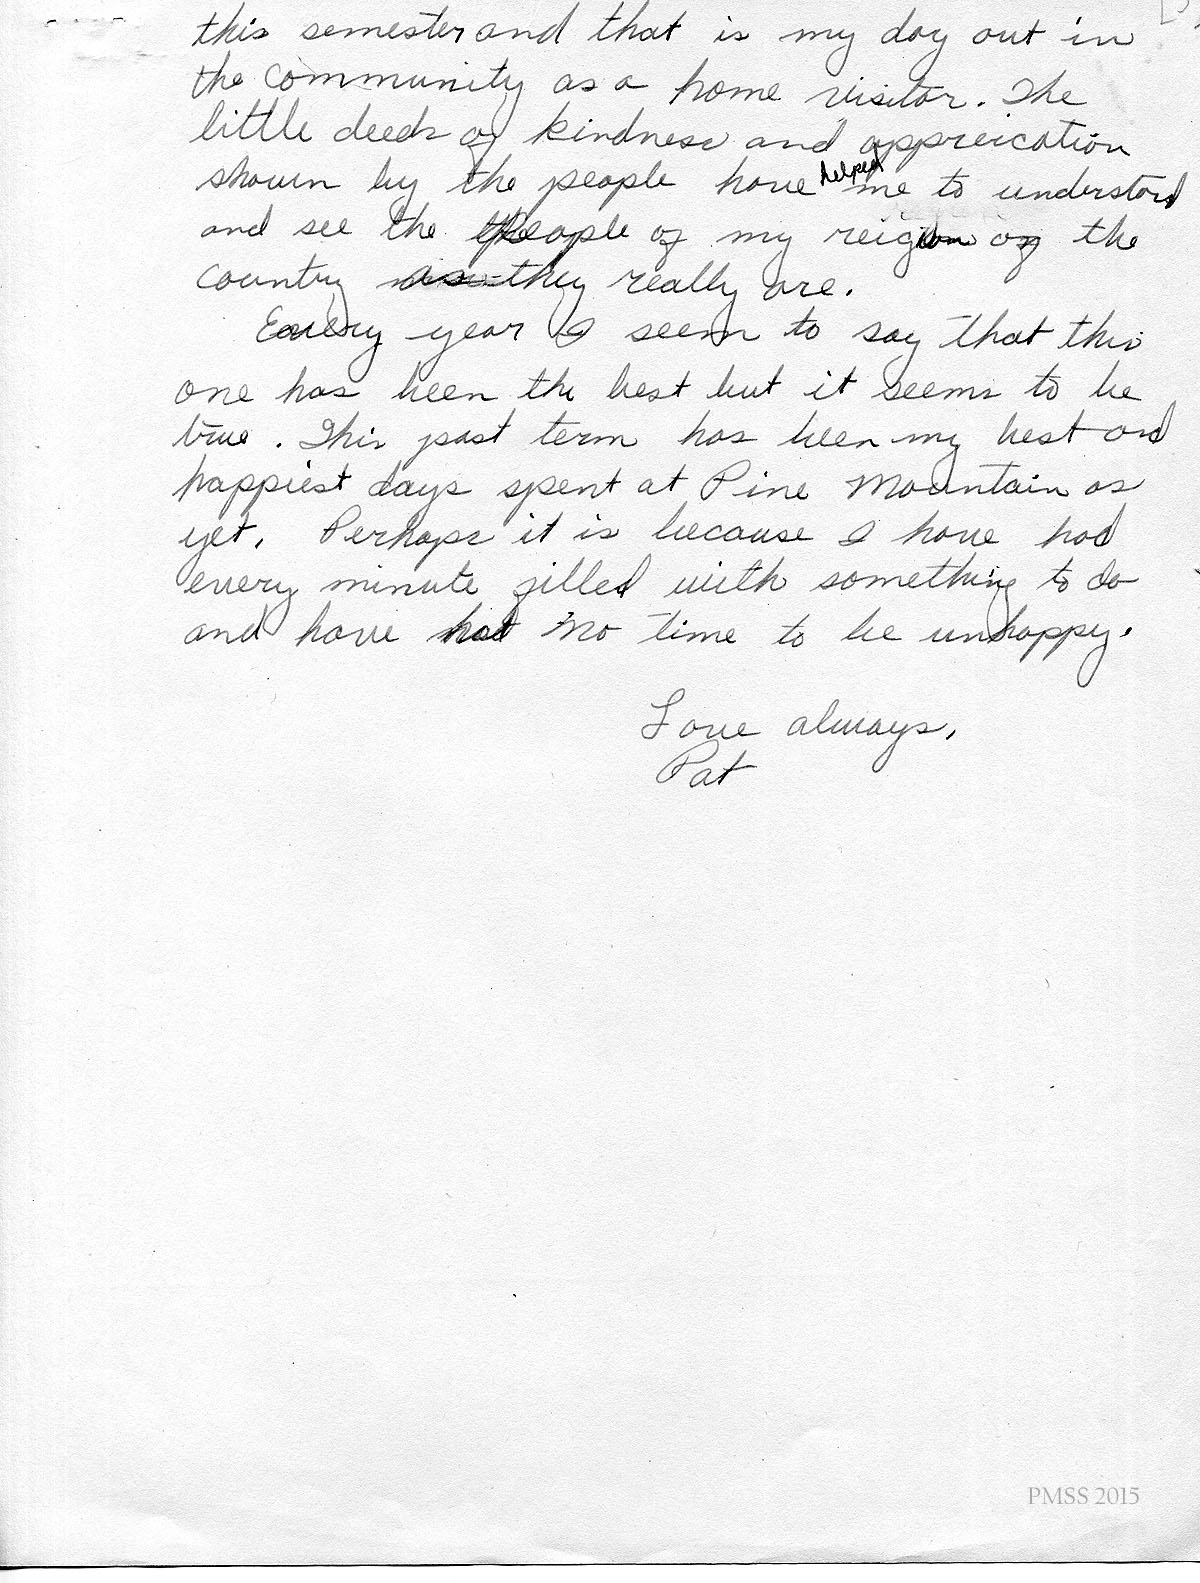 this semester and that is my day out in
the community as a home visitor. The
little deeds of kindness and appreication
shown by the people have helped me to understand
and see the people of my reigion of the
country as they really are.
Every year I seem to say that this
one has been the best but it seems to be
true. This past term has been my best and
happiest days spent at Pine Mountain as
yet. Perhaps it is because I have had
every minute filled with something to do
and have had no time to be unhappy.
Love always,
Pat
PMSS 2015